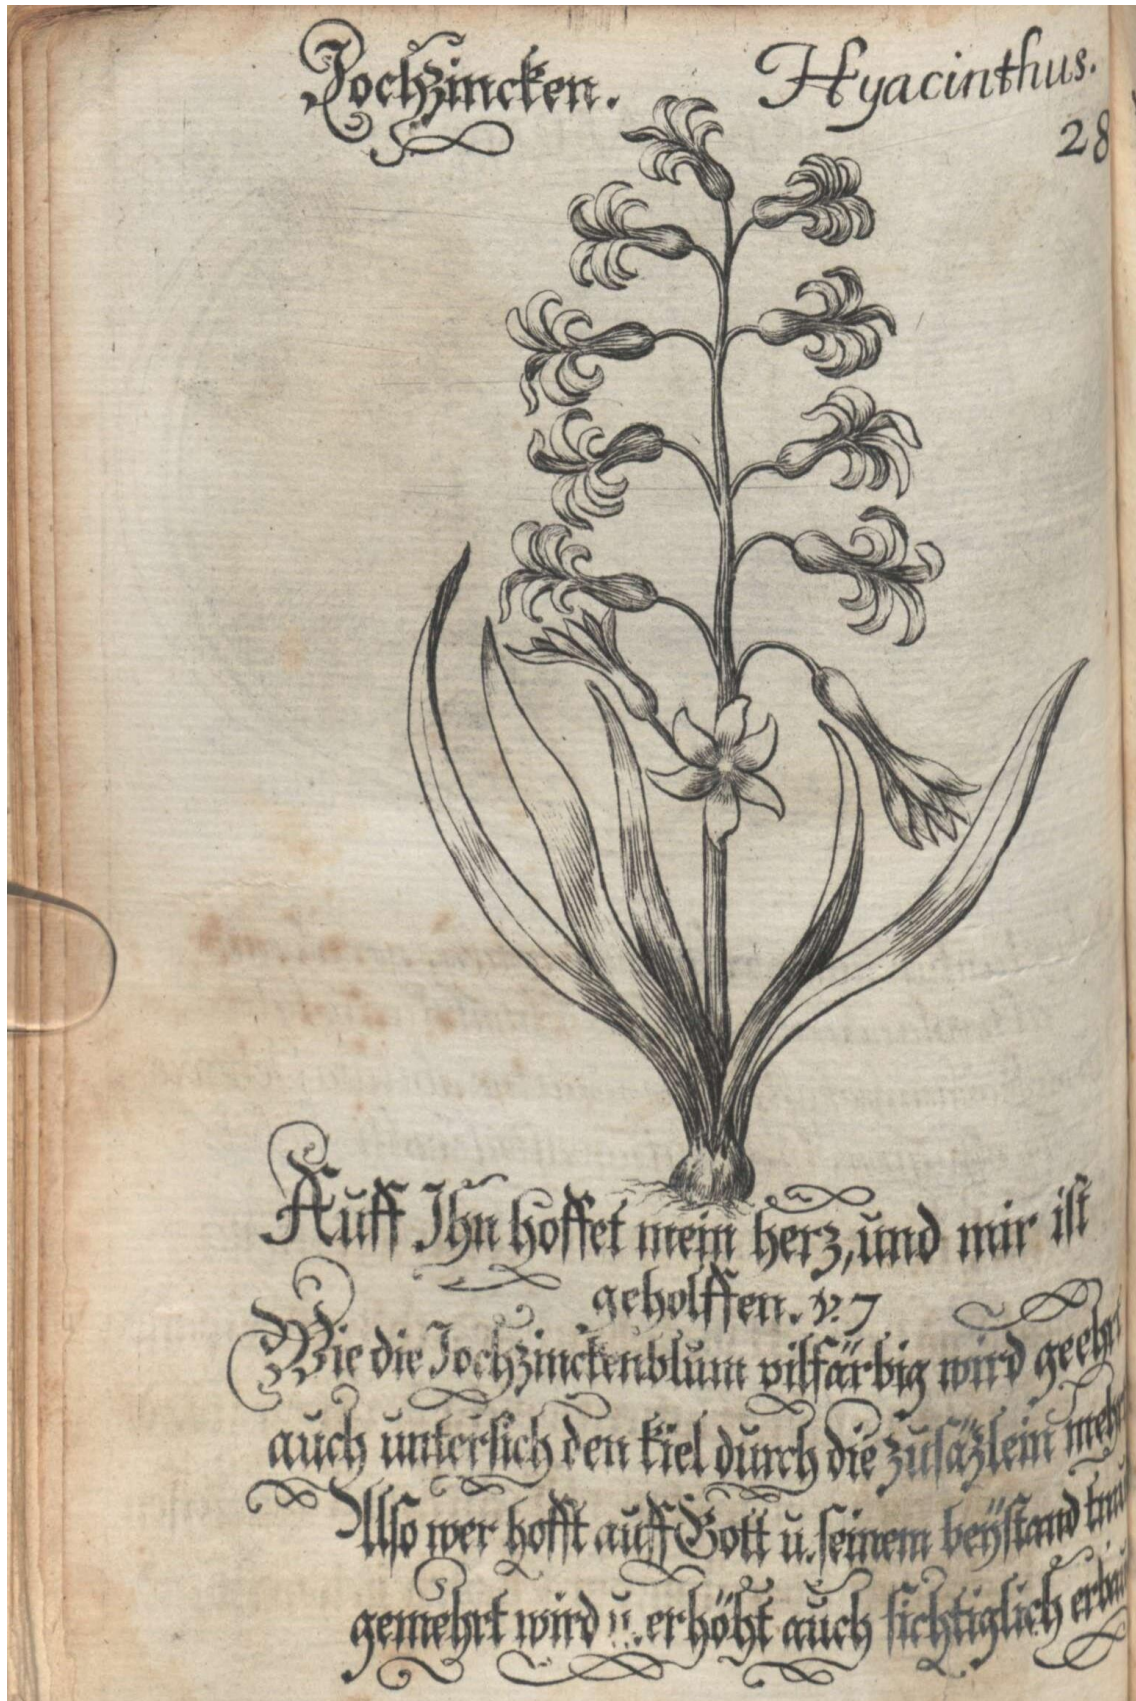 Jochzincken. Hyacinthus.
28
Auff Ihn hoffet mein herz, und mir ist
geholffen. v. 7
Wie die Jochzinckenblum vilfärbig wird
auch untersich den kiel durch die zusäzlein
Also wer hofft auff Gott u. seinem beÿstand
gemehrt wird u. erhöht auch sichtiglich